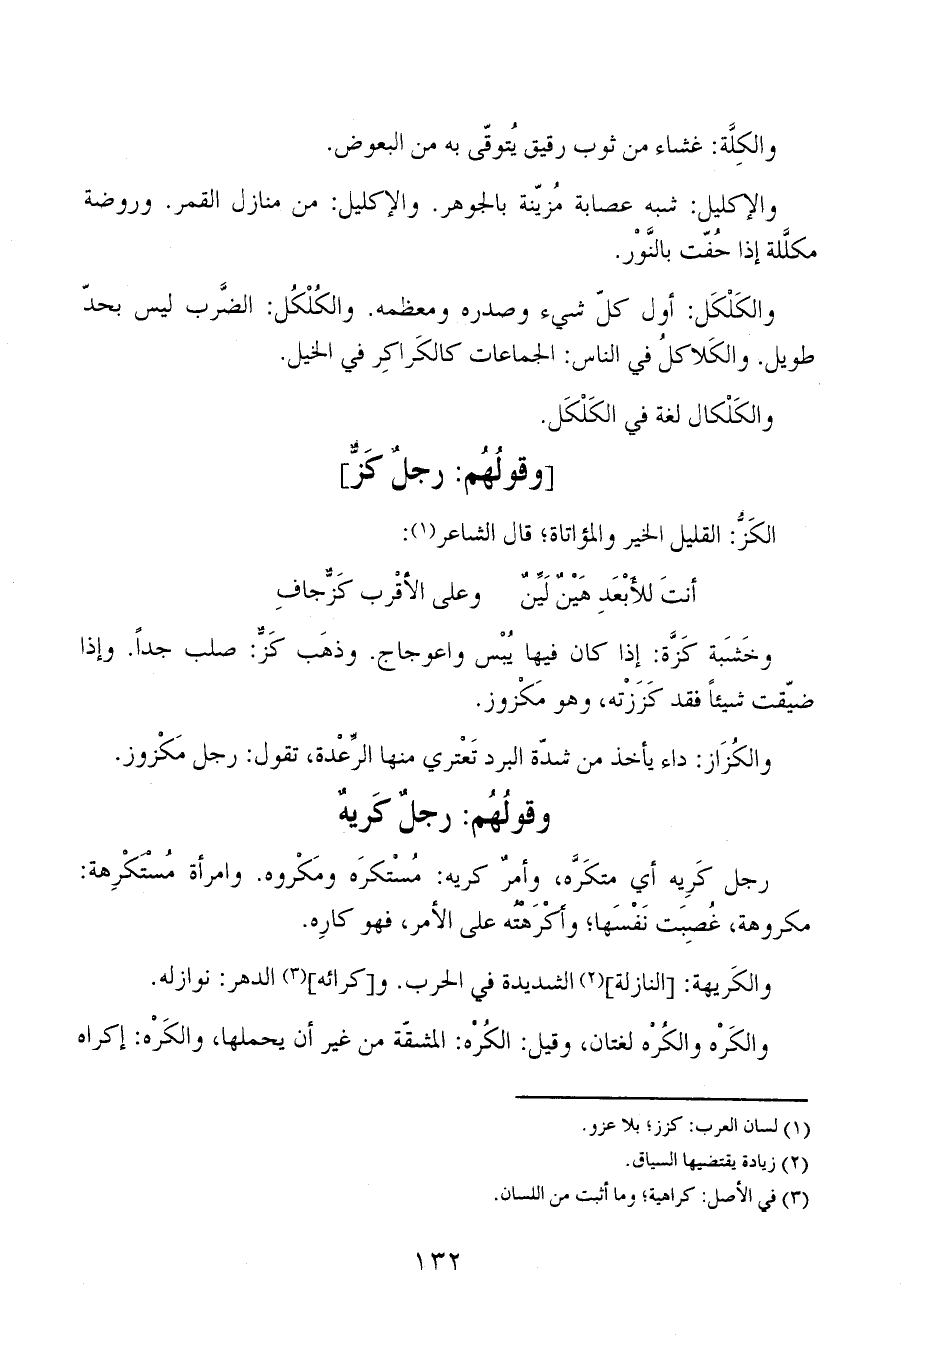 والكِلَّة: غشاء من ثوب رقيق يُتوقّى به من البعوض.
والإكليل: شبه عصابة مُزيّنة بالجوهر. والإكليل: من منازل القمر. وروضة
مكلَّلة إذا حُفّت بالنَّوْر.
والكَلْكَل: أول كلّ شيء وصدره ومعظمه. والكُلْكُل: الضَّرب ليس بحدّ
طويل. والكَلاكلُ في الناس: الجماعات كالكَراكِر في الخيل.
والكَلْكال لغة في الكَلْكَل.
[وقولُهُم: رجلٌ كَزٌّ]
الكَزُّ: القليل الخير والمؤاتاة؛ قال الشاعر(١):
أنتَ للأبْعَدِ هَيْنٌ لَيِّنٌ وعلى الأقْرب كَزٌّ جافِ
وخَشَبَة كَزَّة: إذا كان فيها يُبْس واعوجاج. وذهَب كَزٌّ: صلب جداً. وإذا
ضيّقت شيئاً فقد كَزَزْته، وهو مَكْزوز.
والكُزَاز: داء يأخذ من شدّة البرد تَعْتري منها الرِّعْدة، تقول: رجل مَكْزوز.
وقولُهُم: رجلٌ كَريهٌ
رجل كَرِيه أي متكرَّه، وأمرٌ كريه: مُسْتكرَه ومَكْروه. وامرأة مُسْتَكْرِهة:
مكروهة، غُصِبَت نَفْسَها؛ وأكْرَهْتُه على الأمر، فهو كارِه.
والكَريهة: [النازلة](٢) الشديدة في الحرب. و[كرائه](٣) الدهر: نوازله.
والكَرْه والكُرْه لغتان، وقيل: الكُرْه: المشقّة من غير أن يحملها، والكَرْه: إكراه
(١) لسان العرب: كزز؛ بلا عزو.
(٢) زيادة يقتضيها السياق.
(٣) في الأصل: كراهية؛ وما أثبت من اللسان.
١٣٢